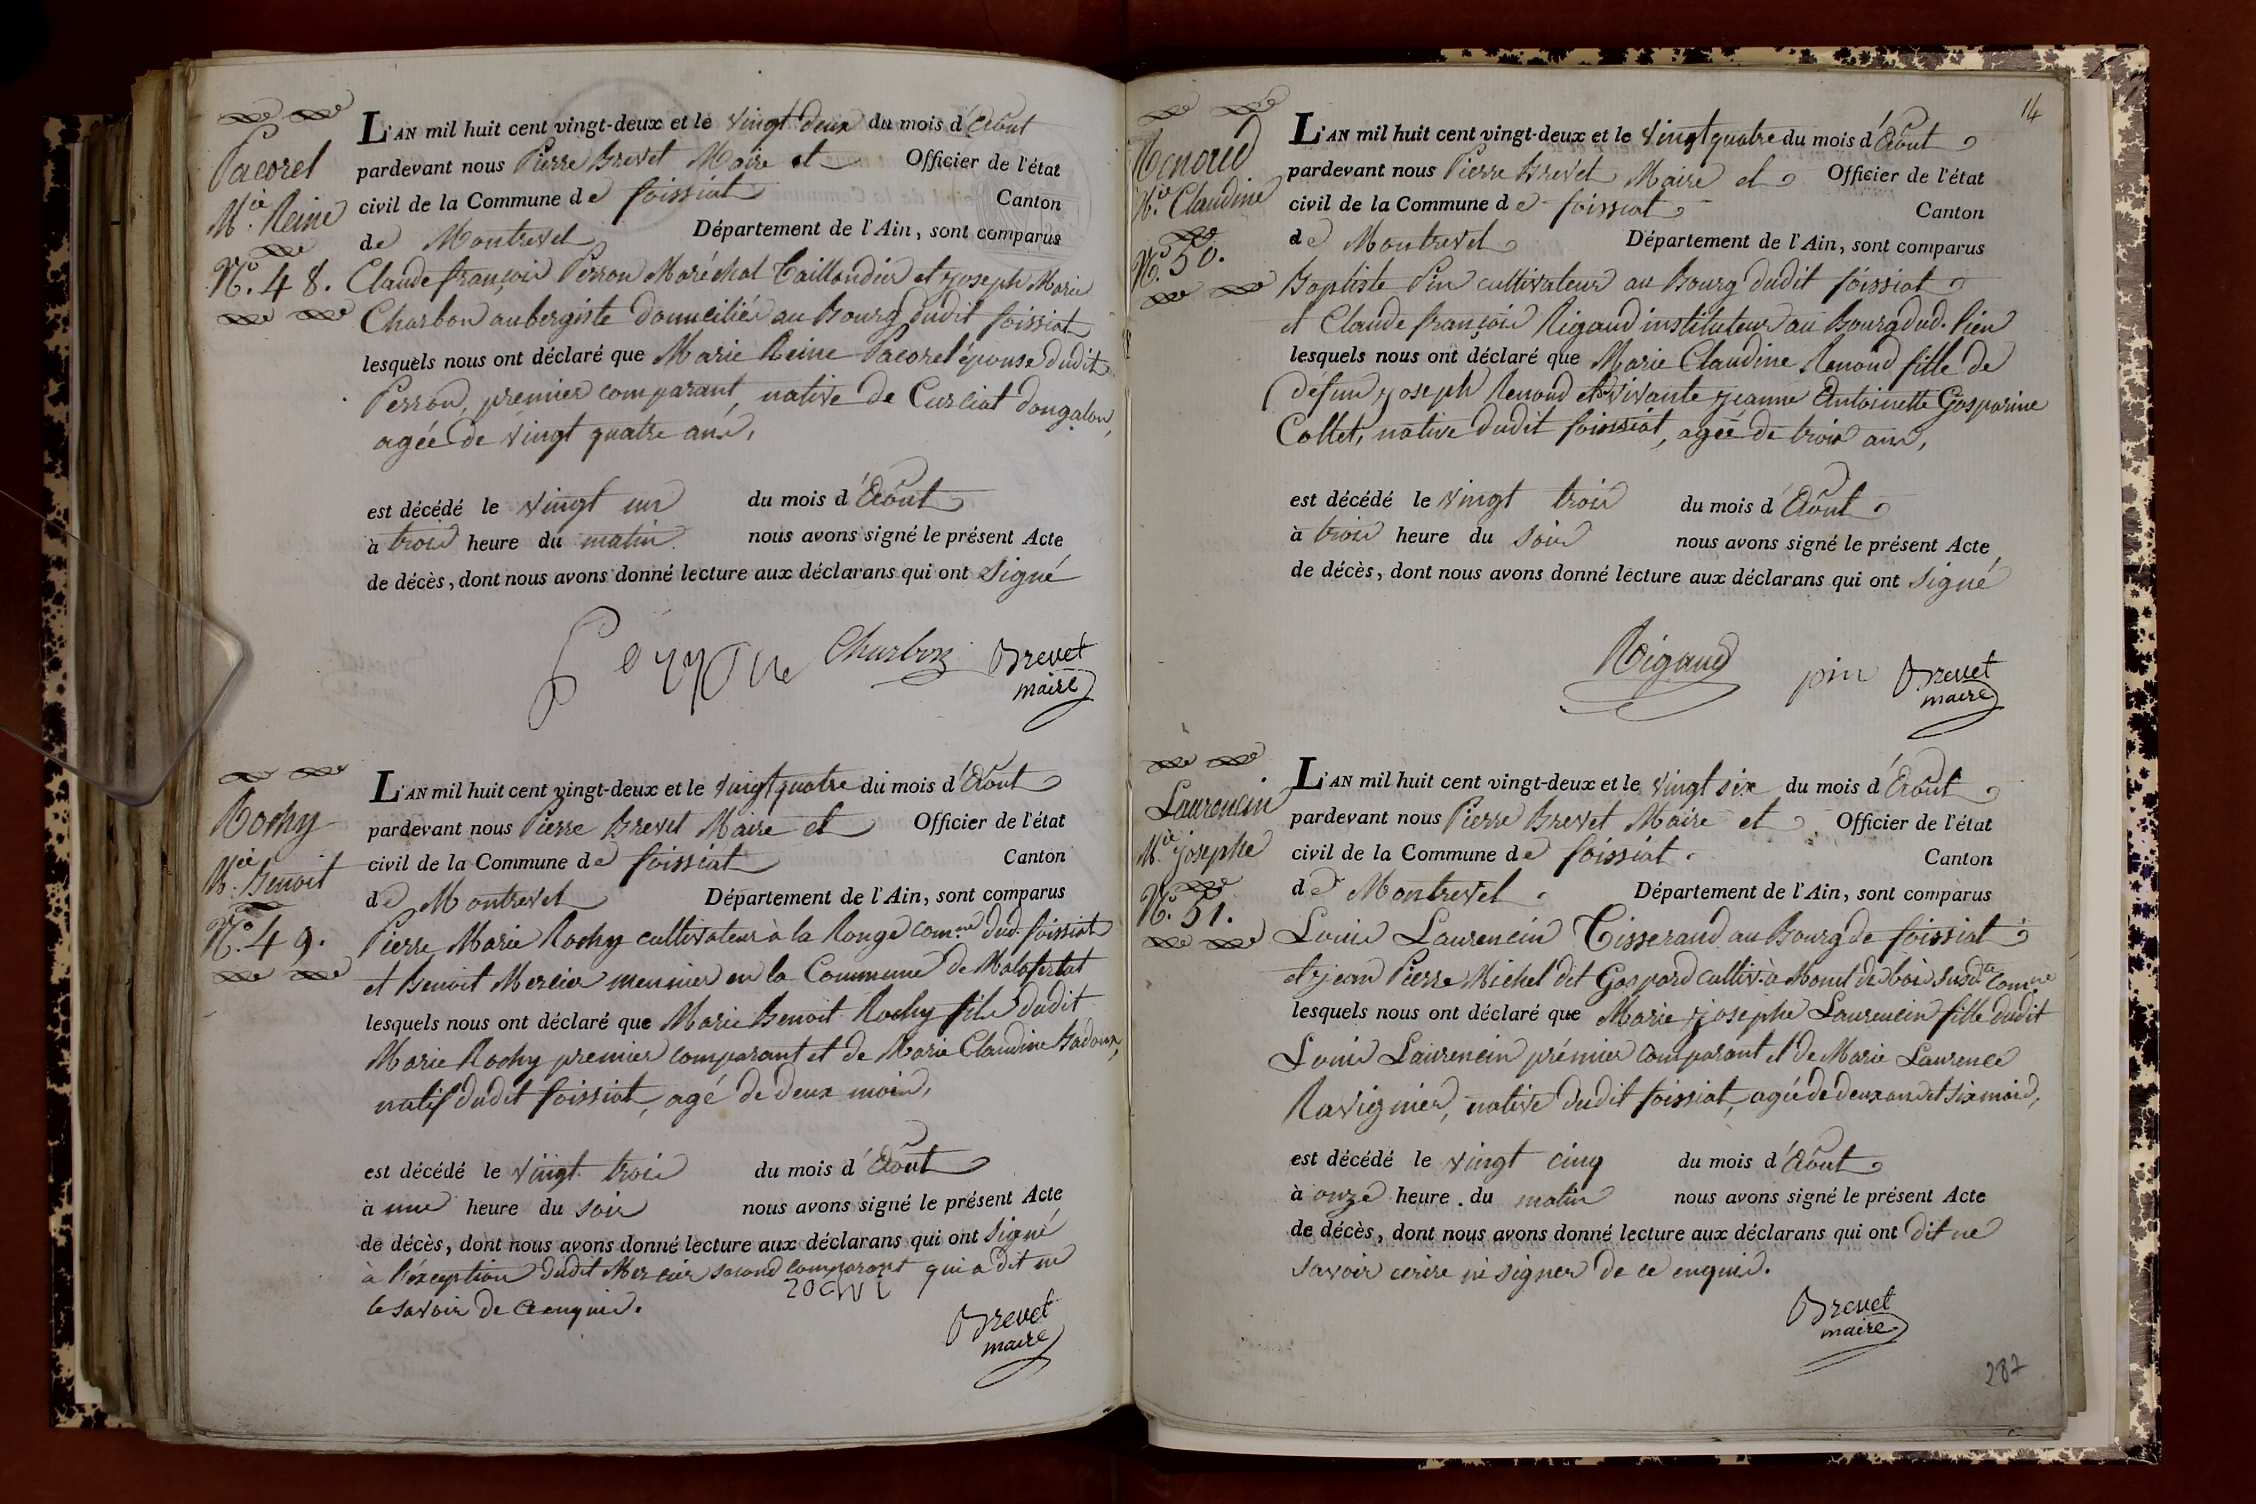 Pacorel
Mie. Reine
No. 48.
L'AN mil huit cent vingt-deux et le vingt deux du mois d'Août
pardevant nous Pierre Brevet Maire et Officier de l'état
civil de la Commune de foissiat Canton
de Montrevel Département de l'Ain, sont comparus
Claude françois Perron Maréchal Taillandier et joseph Marie
Charbon aubergiste domiciliés au Bourg dudit foissiat
lesquels nous ont déclaré que Marie Reine Pacorel épouse dudit
Perron, premier comparant, native de Curciat dongalon,
agée de vingt quatre ans,
est décédé le vingt un du mois d'Août
à trois heure du matin nous avons signé le présent Acte
de décès, dont nous avons donné lecture aux déclarans qui ont signé
Charbon Brevet
maire
Rochy
Mie. Benoit
No. 49.
L'AN mil huit cent vingt-deux et le vingt quatre du mois d'Août
pardevant nous Pierre Brevet Maire et Officier de l'état
civil de la Commune de foissiat Canton
de Montrevel Département de l'Ain, sont comparus
Pierre Marie Rochy cultivateur à la Ronge comne. dud. foissiat
et Benoit Mercier meunier en la Commune de Malafertat
lesquels nous ont déclaré que Marie Benoit Rochy fils dudit
Marie Rochy premier comparant et de Marie Claudine Badoux,
natif dudit foissiat, agé de deux mois,
est décédé le vingt trois du mois d'Août
à une heure du soir nous avons signé le présent Acte
de décès, dont nous avons donné lecture aux déclarans qui ont signé
à l'éxception dudit Mercier second comparant qui a dit ne
le savoir de ce enquis.
Brevet
maire
14
Renoud
Mie. Claudine
No. 50.
L'AN mil huit cent vingt-deux et le vingt quatre du mois d'Août
pardevant nous Pierre Brevet Maire et Officier de l'état
civil de la Commune de foissiat Canton
de Montrevel Département de l'Ain, sont comparus
Baptiste Pin cultivateur au Bourg dudit foissiat
et Claude françois Rigaud instituteur au Bourg dud. lieu
lesquels nous ont déclaré que Marie Claudine Renoud fille de
défun joseph Renoud et vivante jeanne Antoinette Gasparine
Collet, native dudit foissiat, agée de trois ans,
est décédé le vingt trois du mois d'Août
à trois heure du soir nous avons signé le présent Acte
de décès, dont nous avons donné lecture aux déclarans qui ont signé
Rigaud pin Brevet
maire
Laurencin
Mie josephe
No. 51.
L'AN mil huit cent vingt-deux et le vingt six du mois d'Août
pardevant nous Pierre Brevet Maire et Officier de l'état
civil de la Commune de foissiat Canton
de Montrevel Département de l'Ain, sont comparus
Louis Laurencin Tisserand au Bourg de foissiat
et jean Pierre Michel dit Gaspard cultiv. à Mont de bois susdte. Comne
lesquels nous ont déclaré que Marie josephe Laurencin fille dudit
Louis Laurencin prémier comparant et de Marie Laurence
Ravignier, native dudit foissiat, agée de deux ans et six mois,
est décédé le vingt cinq du mois d'Août
à onze heure du matin nous avons signé le présent Acte
de décès, dont nous avons donné lecture aux déclarans qui ont dit ne
savoir ecrire ni signer de ce enquis.
Brevet
maire
287